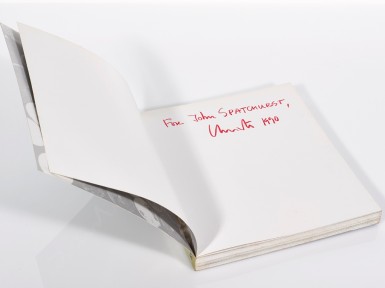 For John SPATCHURST,
Christo 1990